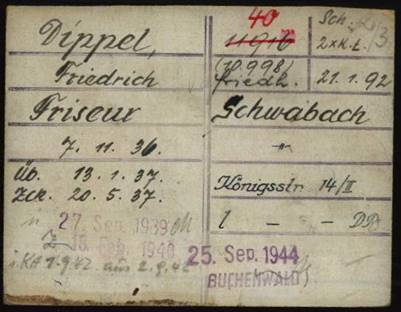 Dippel, 40 Sch.
11916 2xK.L. 2/3
(10.998)
Friedrich Friedh. 21.1.92
Friseur Schwabach
7. 11. 36. -"-
Üb. 13. 1. 37.
Zck. 20. 5. 37. Königsstr. 14/II
27. Sep. 1939 1 - -
15. Feb. 1940 25. Sep. 1944
1.9.42 aus 2.9.42 BUCHENWALD